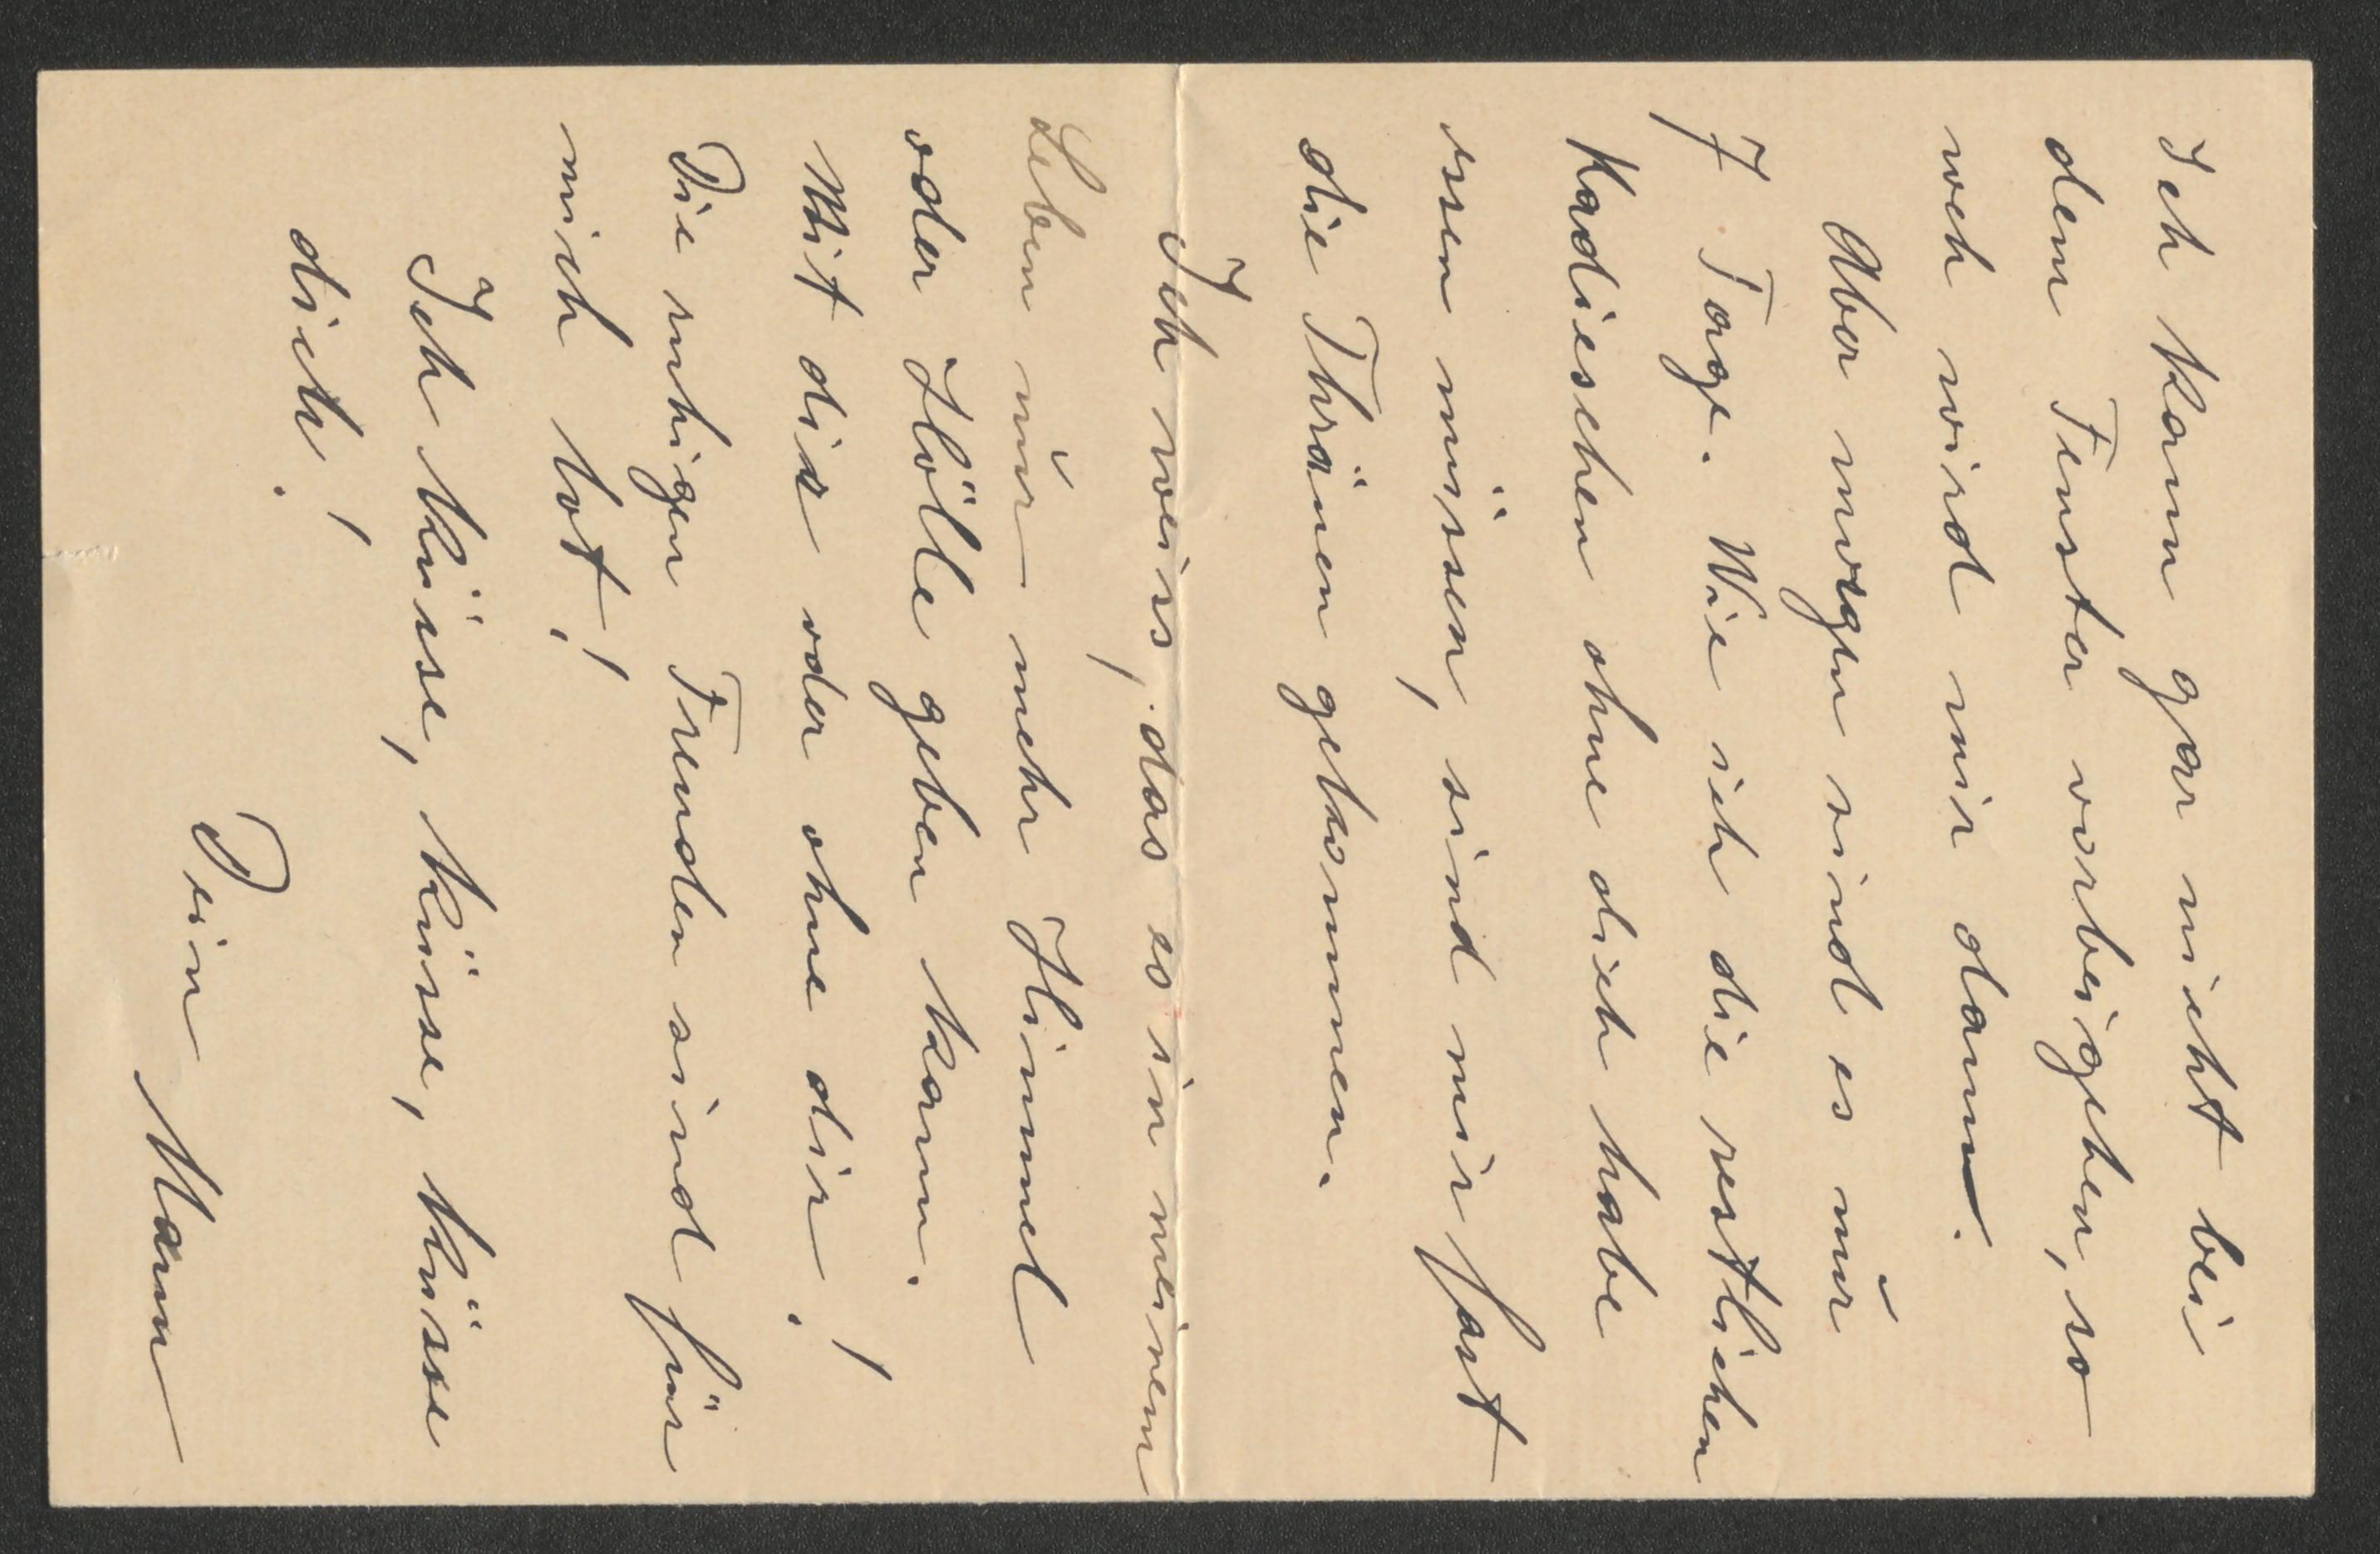 Ich kann gar nicht bei
dem Fenster vorbeigehen, so
weh wird mir dann.
Aber morgen sind es nur
7 Tage. Wie ich die restlichen
Radieschen ohne dich habe
essen müssen, sind mir fast
die Thränen gekommen.
Ich weiss, das es in meinem
Leben nur mehr Himmel
oder Hölle geben kann.
Mit dir oder ohne dir!
Die ruhigen Freuden sind für
mich tot!
Ich küsse, küsse, küsse
dich!
Dein Mann